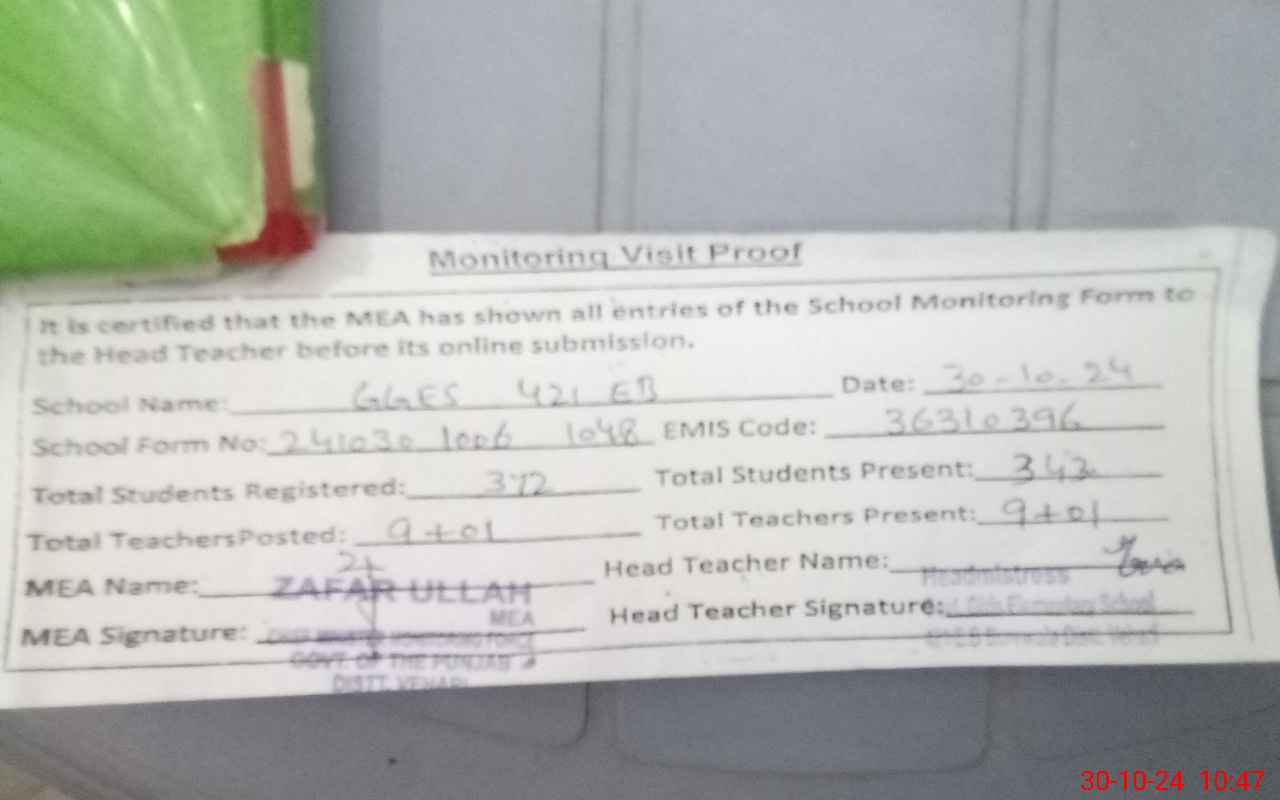 Monitoring Visit Proof
It is certified that the MEA has shown all entries of the School Monitoring Form to
the Head Teacher before its online submission.
School Name: GGES 421 EB Date: 30-10-24
School Form No: 241030 1006 1048 EMIS Code: 36310396
Total Students Registered: 372 Total Students Present: 343
Total TeachersPosted: 9+01 Total Teachers Present: 9+01
MEA Name: ZAFAR ULLAH Head Teacher Name:
Headmistress
MEA
MEA Signature: Head Teacher Signature:
Girls Elementary School
MONITORING FORCE
GOVT. OF THE PUNJAB
DISTT. VEHARI
30-10-24 10:47